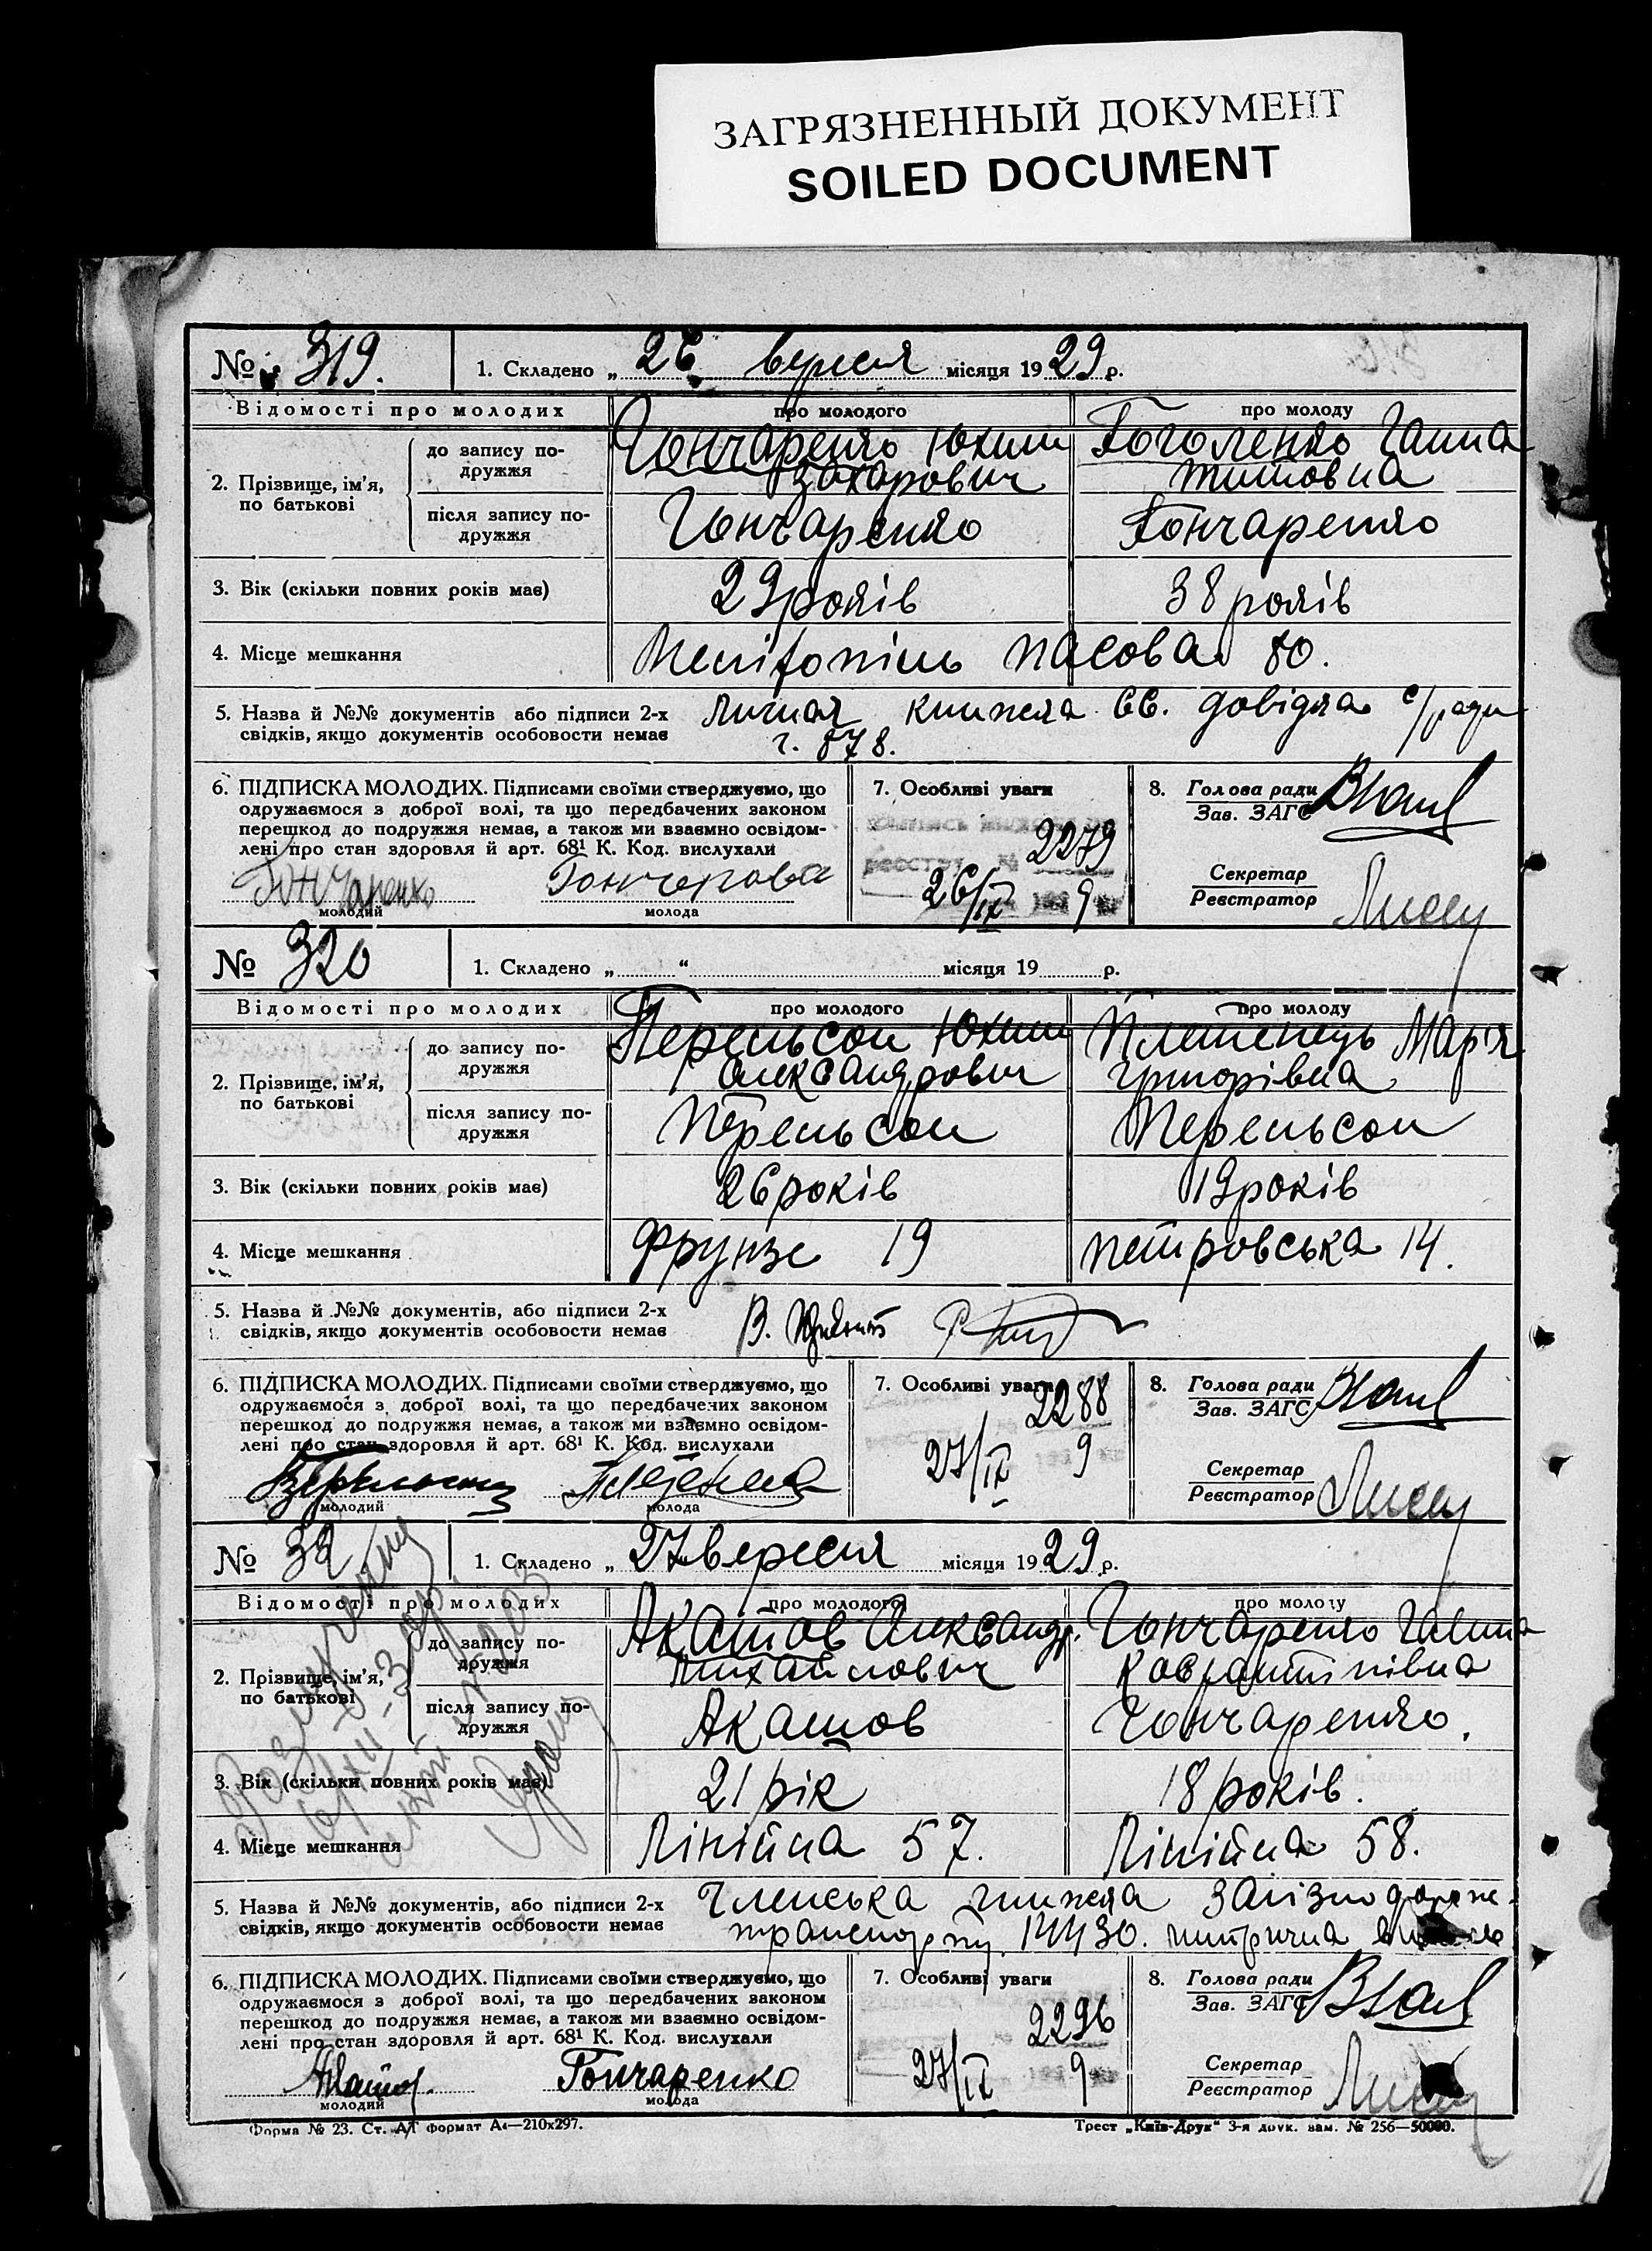 ЗАГРЯЗНЕННЫЙ ДОКУМЕНТ
SOILED DOCUMENT
№ 319. 1. Складено „ 26 вересня місяця 1929 р.
Відомості про молодих про молодого про молоду
2. Прізвище, ім'я, по батькові
до запису подружжя Гончаренко Юхим Захарович Гоголенко Ганна Титовна
після запису подружжя Гончаренко Гончаренко
3. Вік (скільки повних років має) 29 років 38 років
4. Місце мешкання Мелітопіль 80.
5. Назва й №№ документів або підписи 2-х книжка довідка с/ради
свідків, якщо документів особовости немає ч. 878.
6. ПІДПИСКА МОЛОДИХ. Підписами своїми стверджуємо, що
одружаємося з доброї волі, та що передбачених законом
перешкод до подружжя немає, а також ми взаємно освідом-
лені про стан здоровля й арт. 68¹ К. Код. вислухали
Гончаренко Гончарова
молодий молода
7. Особливі уваги
2279
26/IX 9
8. Голова ради
Зав. ЗАГС
Секретар
Реєстратор
№ 320 1. Складено „ “ місяця 19 р.
Відомості про молодих про молодого про молоду
2. Прізвище, ім'я, по батькові
до запису подружжя Перельсон Юхим Александрович Плетенець Мар'я Григорівна
після запису подружжя Перельсон Перельсон
3. Вік (скільки повних років має) 26 років 19 років
4. Місце мешкання Фрунзе 19 Петровська 14.
5. Назва й №№ документів, або підписи 2-х В.
свідків, якщо документів особовости немає
6. ПІДПИСКА МОЛОДИХ. Підписами своїми стверджуємо, що
одружаємося з доброї волі, та що передбачених законом
перешкод до подружжя немає, а також ми взаємно освідом-
лені про стан здоровля й арт. 68¹ К. Код. вислухали
молодий молода
7. Особливі уваги
2288
27/IX 9
8. Голова ради
Зав. ЗАГС
Секретар
Реєстратор
№ 32 1. Складено „ 27 вересня місяця 1929 р.
Відомості про молодих про молодого про молоду
2. Прізвище, ім'я, по батькові
до запису подружжя Акатов Александр. Михайлович Гончаренко Галина
після запису подружжя Акатов Гончаренко.
3. Вік (скільки повних років має) 21 рік 18 років.
4. Місце мешкання Лінійна 57. Лінійна 58.
5. Назва й №№ документів, або підписи 2-х Членська книжка залізнодорож-
свідків, якщо документів особовости немає транспорту 14430. митрична
6. ПІДПИСКА МОЛОДИХ. Підписами своїми стверджуємо, що
одружаємося з доброї волі, та що передбачених законом
перешкод до подружжя немає, а також ми взаємно освідом-
лені про стан здоровля й арт. 68¹ К. Код. вислухали
Гончаренко
молодий молода
7. Особливі уваги
2296
27/IX 9
8. Голова ради
Зав. ЗАГС
Секретар
Реєстратор
Форма № 23. Ст. АТ формат А4—210х297. Трест „Київ-Друк“ 3-я друк. зам. № 256—50000.